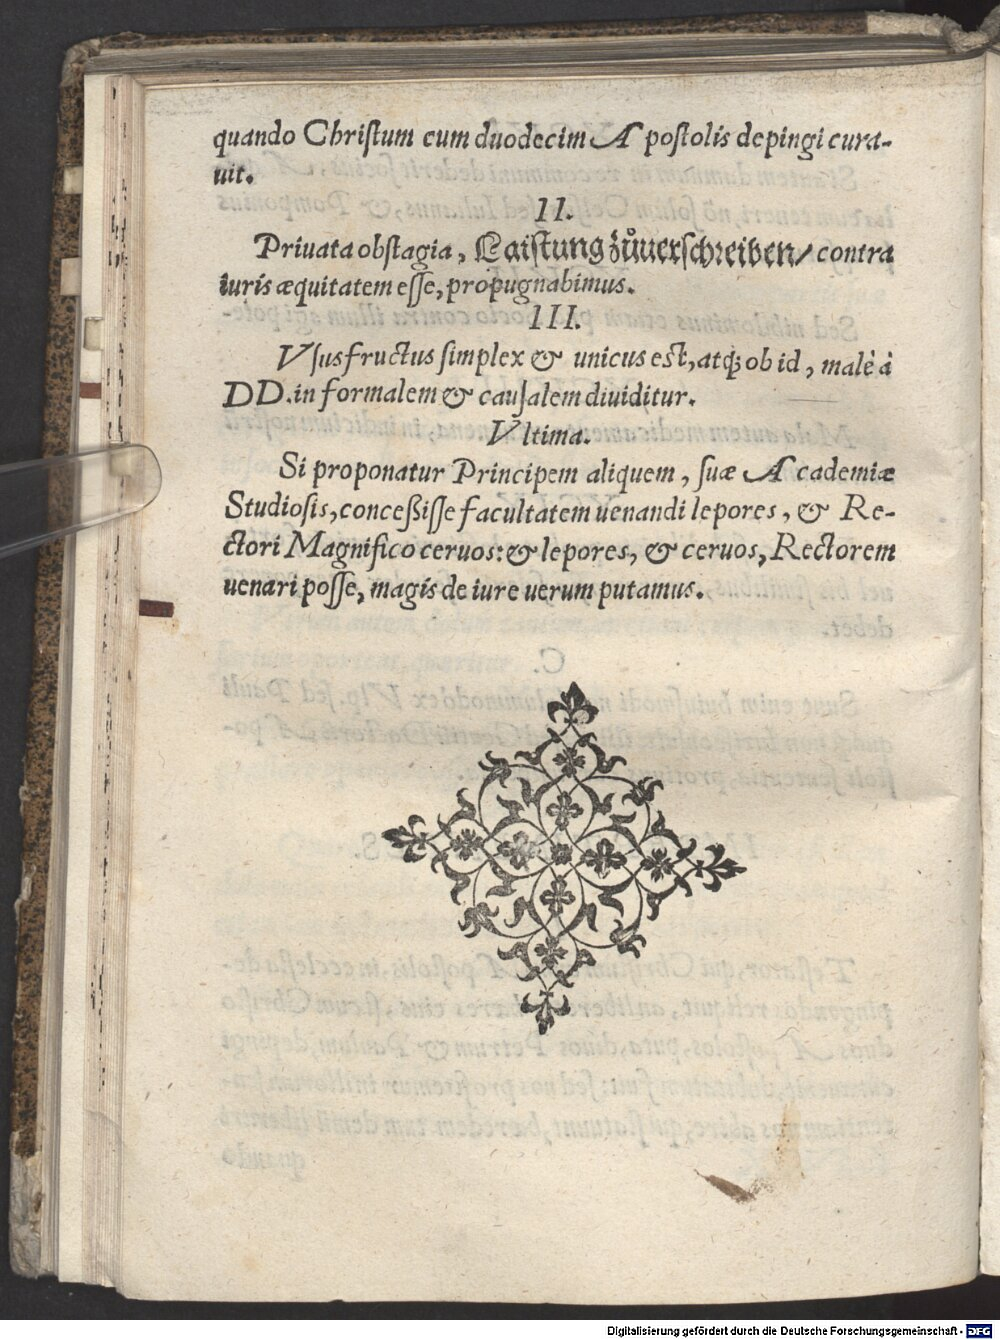 quando Chriſtum cum duodecim Apoſtolis depingi cura-
uit.
II.
Priuata obſtagia, Laiſtung zůuerſchreiben/ contra
iuris æquitatem eſſe, propugnabimus.
III.
Vſusfructus ſimplex & unicus est, atq; ob id, malè à
DD. in formalem & cauſalem diuiditur.
Vltima.
Si proponatur Principem aliquem, ſuæ Academiæ
Studioſis, conceßiſſe facultatem uenandi lepores, & Re-
ctori Magnifico ceruos: & lepores, & ceruos, Rectorem
uenari poſſe, magis de iure uerum putamus.
Digitalisierung gefördert durch die Deutsche Forschungsgemeinschaft - DFG